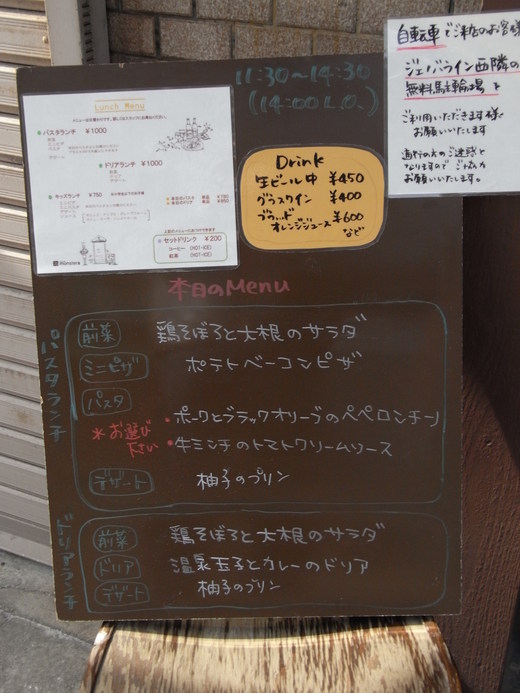 自転車でご来店のお客様
ジェノバライン西隣の
無料駐輪場を
ご利用いただきます様、
お願いいたします
通行の方のご迷惑と
なりますので ご協力
お願いいたします。
11:30~14:30
(14:00 L.O.)
Lunch Menu
パスタランチ ¥1000
ドリアランチ ¥1000
キッズランチ ¥750
セットドリンク ¥200
コーヒー (HOT・ICE)
紅茶 (HOT・ICE)
Drink
生ビール中 ¥450
グラスワイン ¥400
ブラッド
オレンジジュース ¥600
など
本日のMenu
パスタランチ
前菜 鶏そぼろと大根のサラダ
ミニピザ ポテトベーコンピザ
パスタ
*お選び下さい
・ポークとブラックオリーブのペペロンチーノ
・牛ミンチのトマトクリームソース
デザート 柚子のプリン
ドリアランチ
前菜 鶏そぼろと大根のサラダ
ドリア 温泉玉子とカレーのドリア
デザート 柚子のプリン